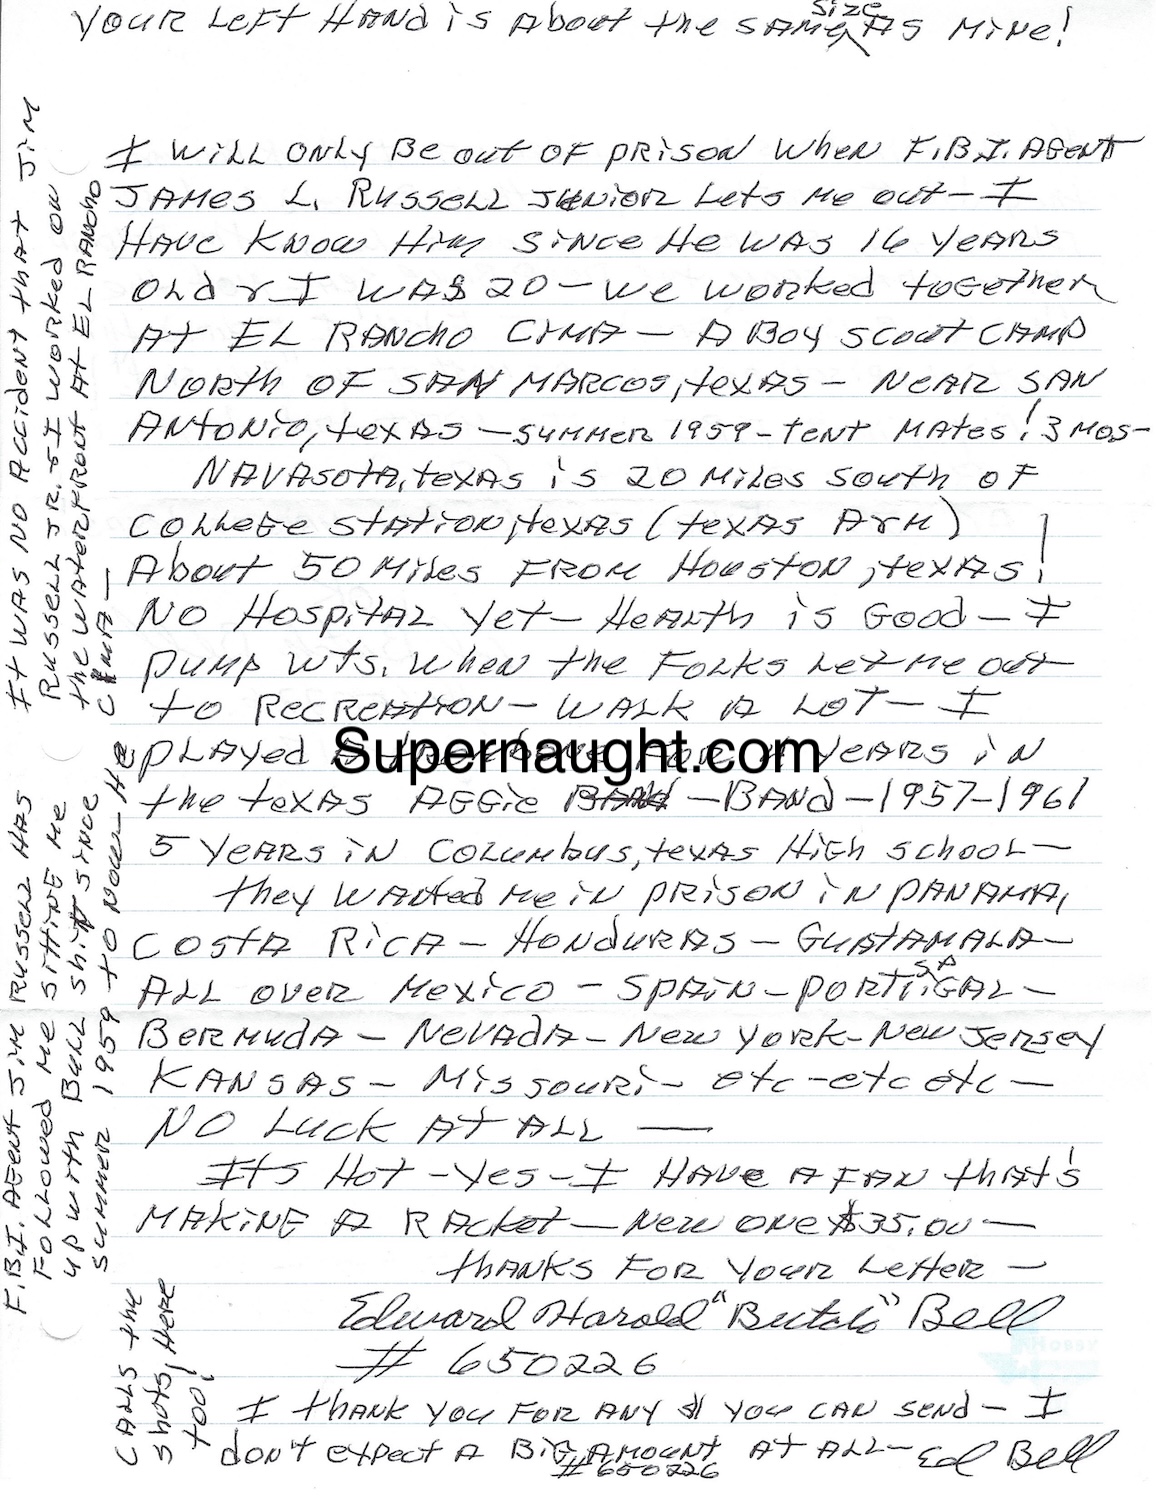 YOUR LEFT HAND is About the SAME size AS MINE!
I WILL ONLY BE out OF PRISON WHEN F.B.I. AGENT
JAMES L. RUSSELL JUNIOR Lets Me out - I
HAVE KNOW Him SINCE He WAS 16 YEARS
OLd & I WAS 20 - We WORKed toGether
At EL RANCHO CIMA - A BOY SCOUT CAMP
NORth OF SAN MARCOS, teXAS - NEAR SAN
ANtoNio, teXAS - SUMMER 1959 - TENT MATES! 3 MOS -
NAVASOTA, teXAS is 20 Miles South OF
COLLEGE StAtION, teXAS (teXAS A&M)
About 50 Miles FROM HOUSTON, teXAS!
NO HOSPITAL Yet - HEALth is Good - I
PUMP Wts. When the FOLKS Let Me out
to RECREATION - WALK A LOT - I
PLAYed A FOR 4 YEARS iN
the teXAS AGGie BAND - BANd - 1957-1961
5 YEARS iN COLUMbus, teXAS HiGh School -
they WANted Me iN PRISON iN PANAMA,
COSTA RICA - HONduRAS - GUATAMALA -
ALL oveR MeXico - SPAiN - PORTIGAL - SP
BERMudA - NeVAdA - New YORK - New JeRSey
KANSAS - MiSSouRi - etc - etc etc -
NO LUCK At ALL -
Its Hot - Yes - I HAVe A FAN thAt's
MAKiNG A RAcket - New ONe $35.00 -
thANKS FOR YouR Letter -
Edward Harold "Butch" Bell
# 650226
I thANK YOU FOR ANY $ YOU CAN SEND - I
don't expect A BIG AMOUNT At ALL - Ed Bell
#650226
It WAS NO ACCident thAt JiM
RUSSELL JR. & I WORKed ON
the WAteRFRONt At EL RANcho
CIMA -
F.B.I. AGENt JiM RUSSell HAS
FOLLOWed Me SittiNG Me
up with BuLL shit SiNCe
SUMMER 1959 to NOW - He
CALLS the
shots Here
too!
Supernaught.com